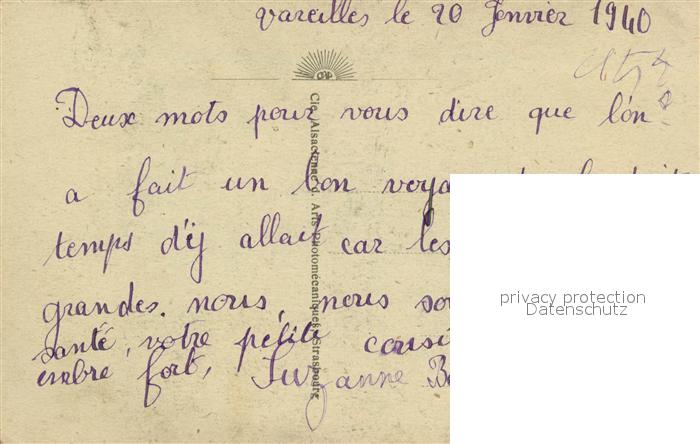 vareilles le 20 Jenvier 1940
Deux mots pour vous dire que l'on
a fait un bon voya
temps d'ij allait car les
grandes. nous, nous so
santé, votre petite cousi
embre fort, Suzanne B
Cie. Alsacienne d. Arts Photomécaniques, Strasbourg
privacy protection
Datenschutz